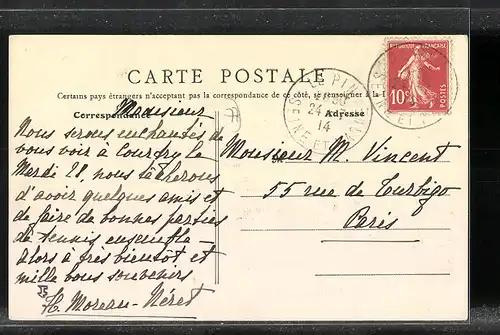 CARTE POSTALE
Certains pays étrangers n'acceptant pas la correspondance de ce côté, se renseigner à la
Correspondance
Adresse
Monsieur
Nous serons enchantés de
vous voir à Courfry le
Mardi 28, nous tâcherons
d'avoir quelques amis et
de faire de bonnes parties
de tennis ensemble –
alors à très bientôt et
mille bons souvenirs
H. Moreau-Néret
Monsieur M. Vincent
55 rue de Turbigo
Paris
REPUBLIQUE FRANÇAISE
10c
POSTES
24
14